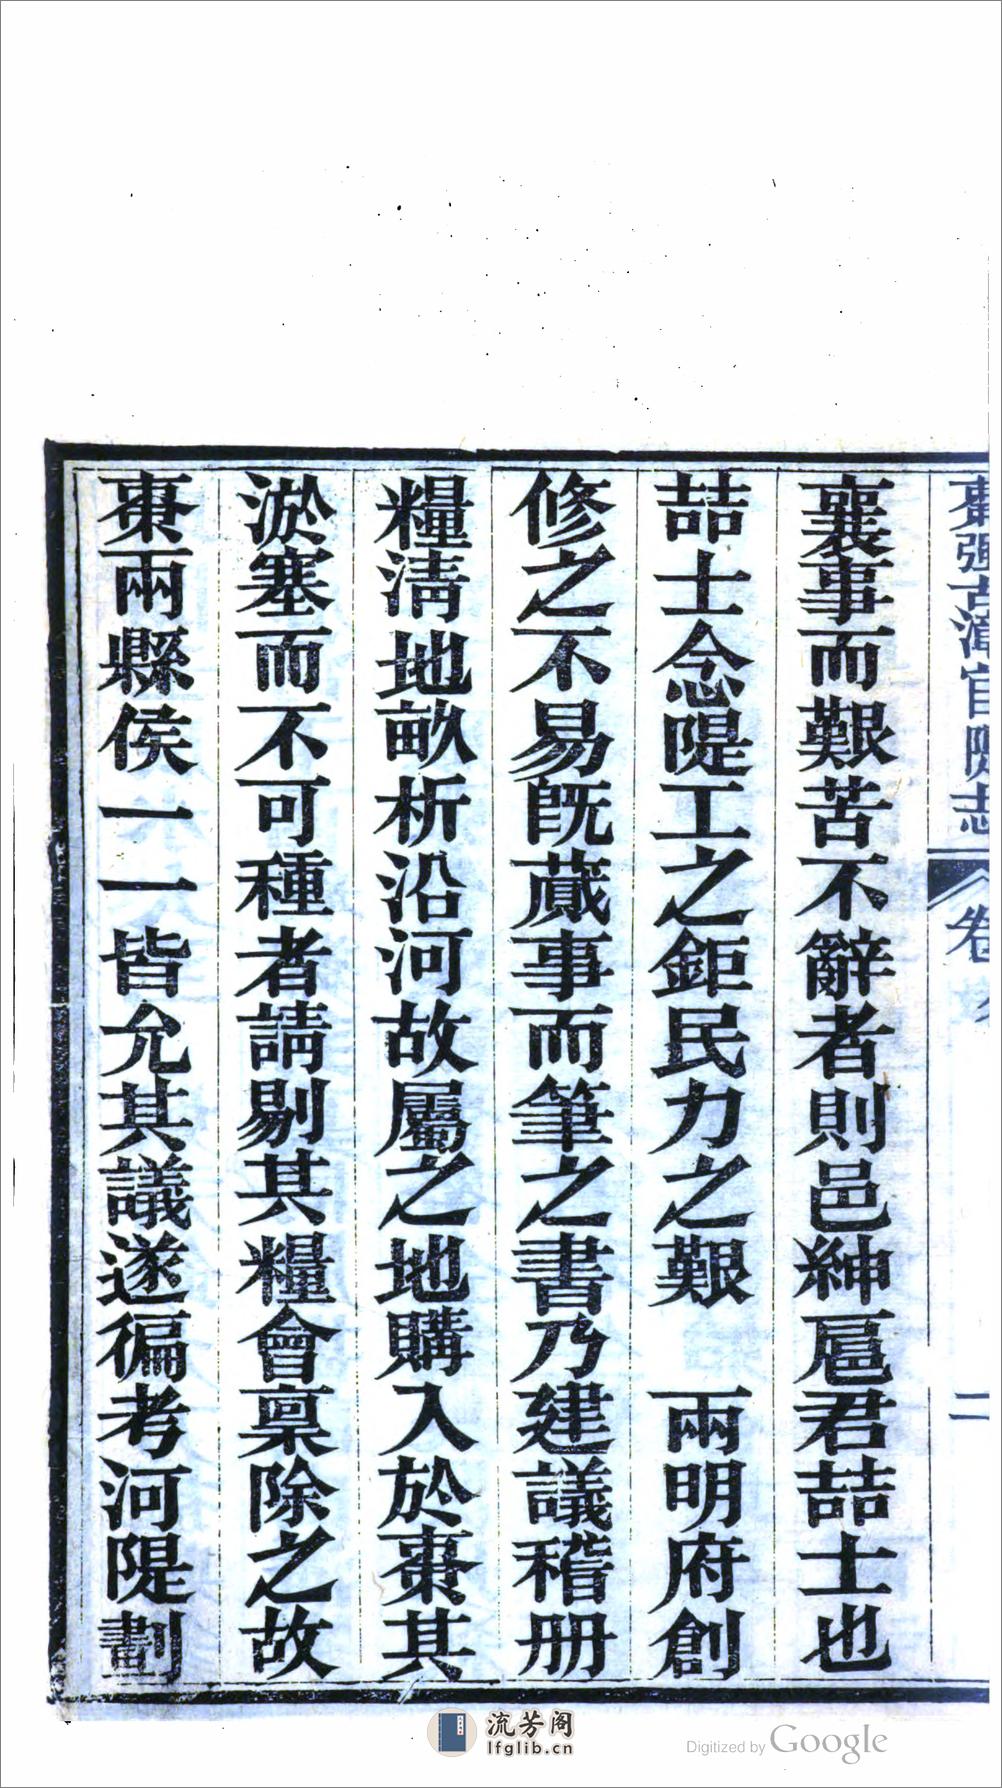 棗強古漳官隄志 卷 二
襄事而艱苦不辭者則邑紳扈君喆士也
喆士念隄工之鉅民力之艱 兩明府創
修之不易既蕆事而筆之書乃建議稽册
糧清地畝析沿河故屬之地購入於棗其
淤塞而不可種者請剔其糧會稟除之故
棗兩縣侯一一皆允其議遂徧考河隄劃
流芳阁
lfglib.cn
Digitized by Google